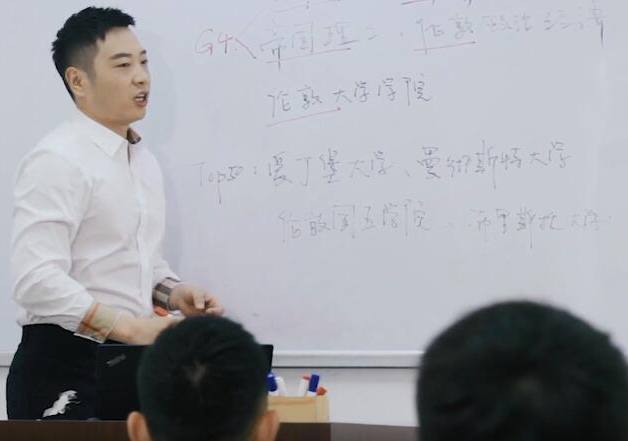 G4 帝国理工、伦敦政治经济
伦敦大学学院
Top50:爱丁堡大学、曼彻斯特大学
伦敦国王学院、布里斯托大学